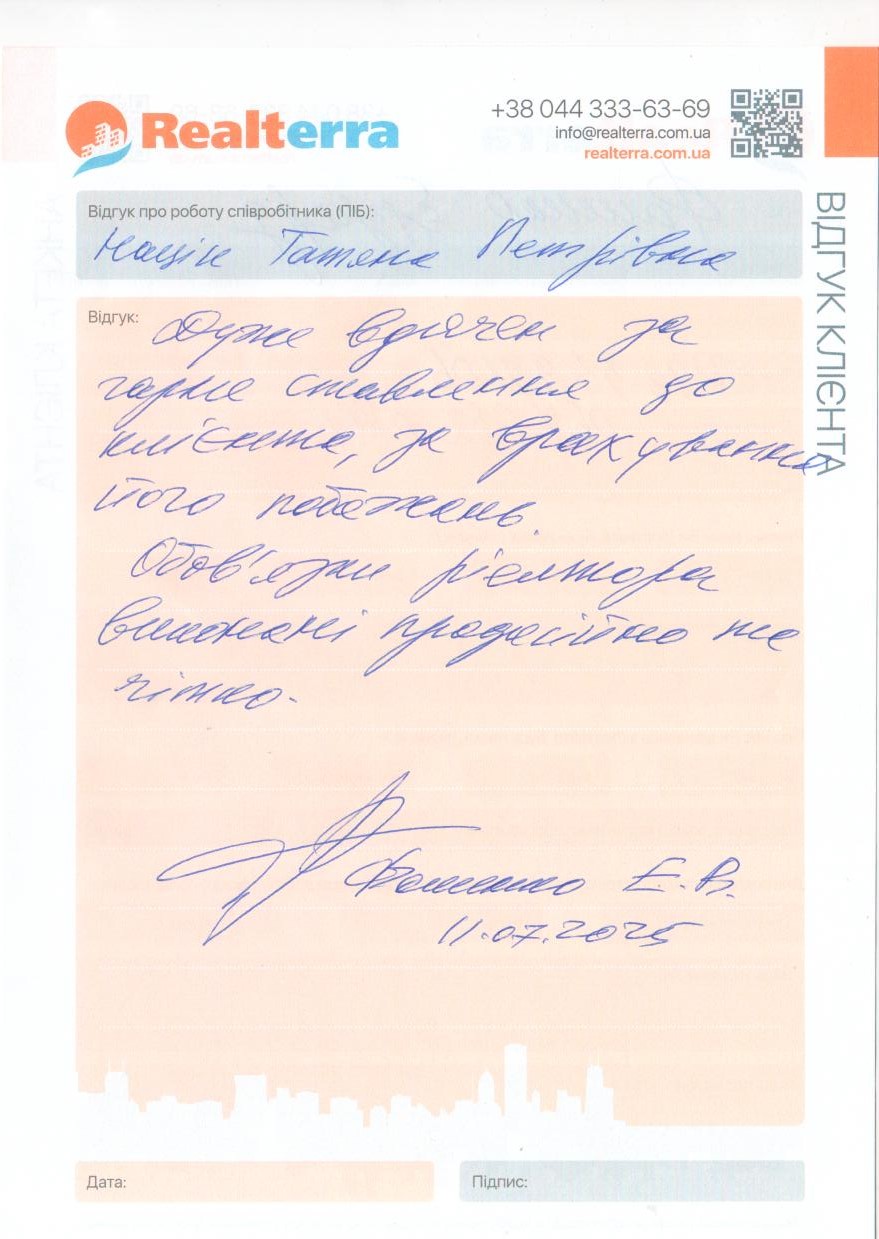 Realterra
+38 044 333-63-69
info@realterra.com.ua
realterra.com.ua
ВІДГУК КЛІЄНТА
Відгук про роботу співробітника (ПІБ):
Націк Татяна Петрівна
Відгук:
Дуже вдячен за
гарне ставлення до
клієнта, за врахування
його побажань.
Обов'язки ріелтора
виконані професійно та
чітко.
Фоменко Е.В.
11.07.2025
Дата:
Підпис: